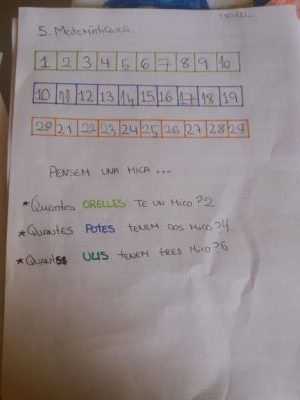 5. MATEMÀTIQUES
1 2 3 4 5 6 7 8 9 10
10 11 12 13 14 15 16 17 18 19
20 21 22 23 24 25 26 27 28 29
PENSEM UNA MICA ...
* QUANTES ORELLES TE UN MICO? 2
* QUANTES POTES TENEM DOS MICO? 4
* QUANTS ULLS TENEM TRES MICO? 6